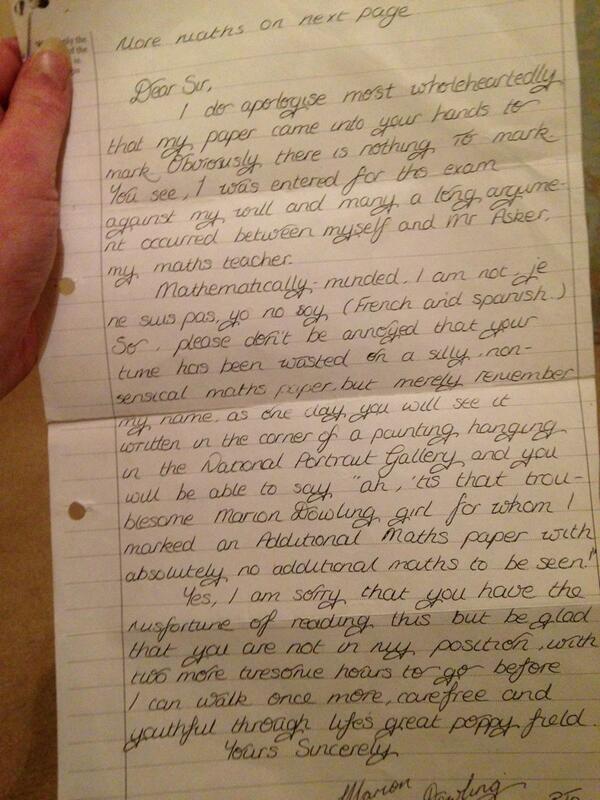 More maths on next page
Dear Sir,
I do apologise most wholeheartedly
that my paper came into your hands to
mark. Obviously there is nothing to mark.
You see, I was entered for this exam
against my will and many a long argume-
nt occurred between myself and Mr Asker,
my maths teacher.
Mathematically-minded, I am not, je
ne suis pas, yo no soy (French and Spanish.)
So, please don't be annoyed that your
time has been wasted on a silly, non-
sensical maths paper, but merely remember
my name, as one day you will see it
written in the corner of a painting hanging
in the National Portrait Gallery and you
will be able to say "ah, 'tis that trou-
blesome Marion Dowling girl for whom I
marked an Additional Maths paper with
absolutely no additional maths to be seen."
Yes, I am sorry that you have the
misfortune of reading this but be glad
that you are not in my position, with
two more tiresome hours to go before
I can walk once more, carefree and
youthful through lifes great poppy field.
Yours Sincerely
Marion Dowling